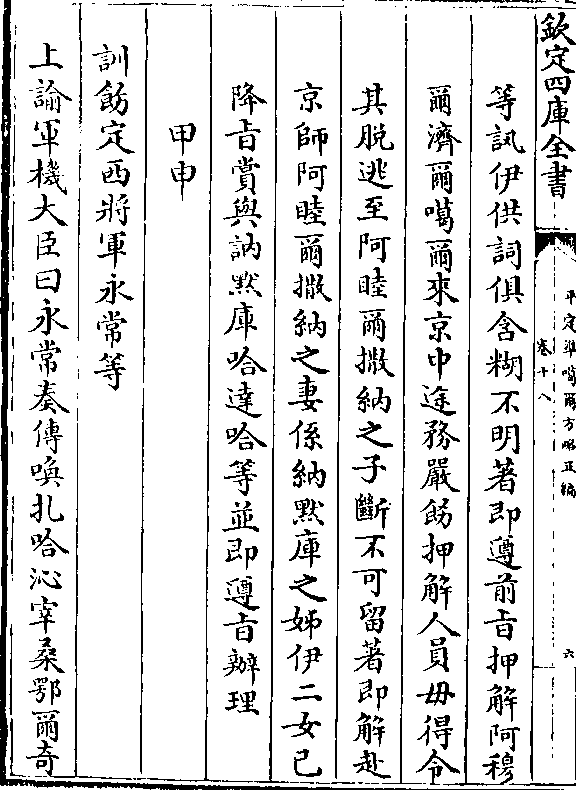 欽定四庫全書
平定準噶爾方略正編
卷十八
六
等訊伊供詞俱含糊不明著即遵前㫖押解阿穆
爾濟爾噶爾來京中途務嚴飭押解人員毋得令
其脫逃至阿睦爾撒納之子斷不可留著即解赴
京師阿睦爾撒納之妻係納黙庫之姊伊二女已
降㫖賞與訥黙庫哈達哈等並即遵㫖辦理
甲申
訓飭定西將軍永常等
上諭軍機大臣曰永常奏傳喚扎哈沁宰桑鄂爾奇